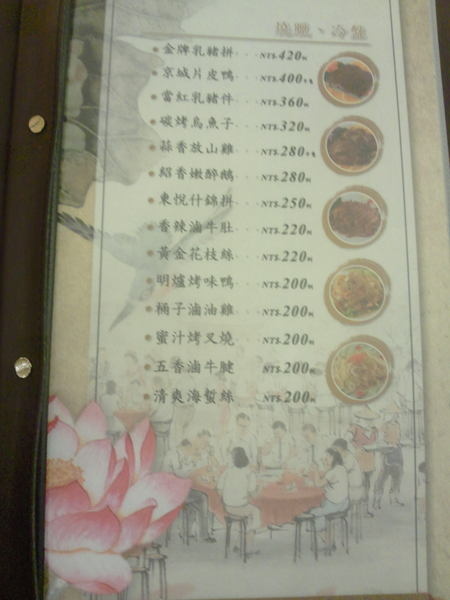 燒臘、冷盤
金牌乳豬拼 NT$.420
京城片皮鴨 NT$.400
當紅乳豬件 NT$.360
碳烤烏魚子 NT$.320
蒜香放山雞 NT$.280
紹香嫩醉鵝 NT$.280
東悅什錦拼 NT$.250
香辣滷牛肚 NT$.220
黃金花枝絲 NT$.220
明爐烤味鴨 NT$.200
桶子滷油雞 NT$.200
蜜汁烤叉燒 NT$.200
五香滷牛腱 NT$.200
清爽海蜇絲 NT$.200